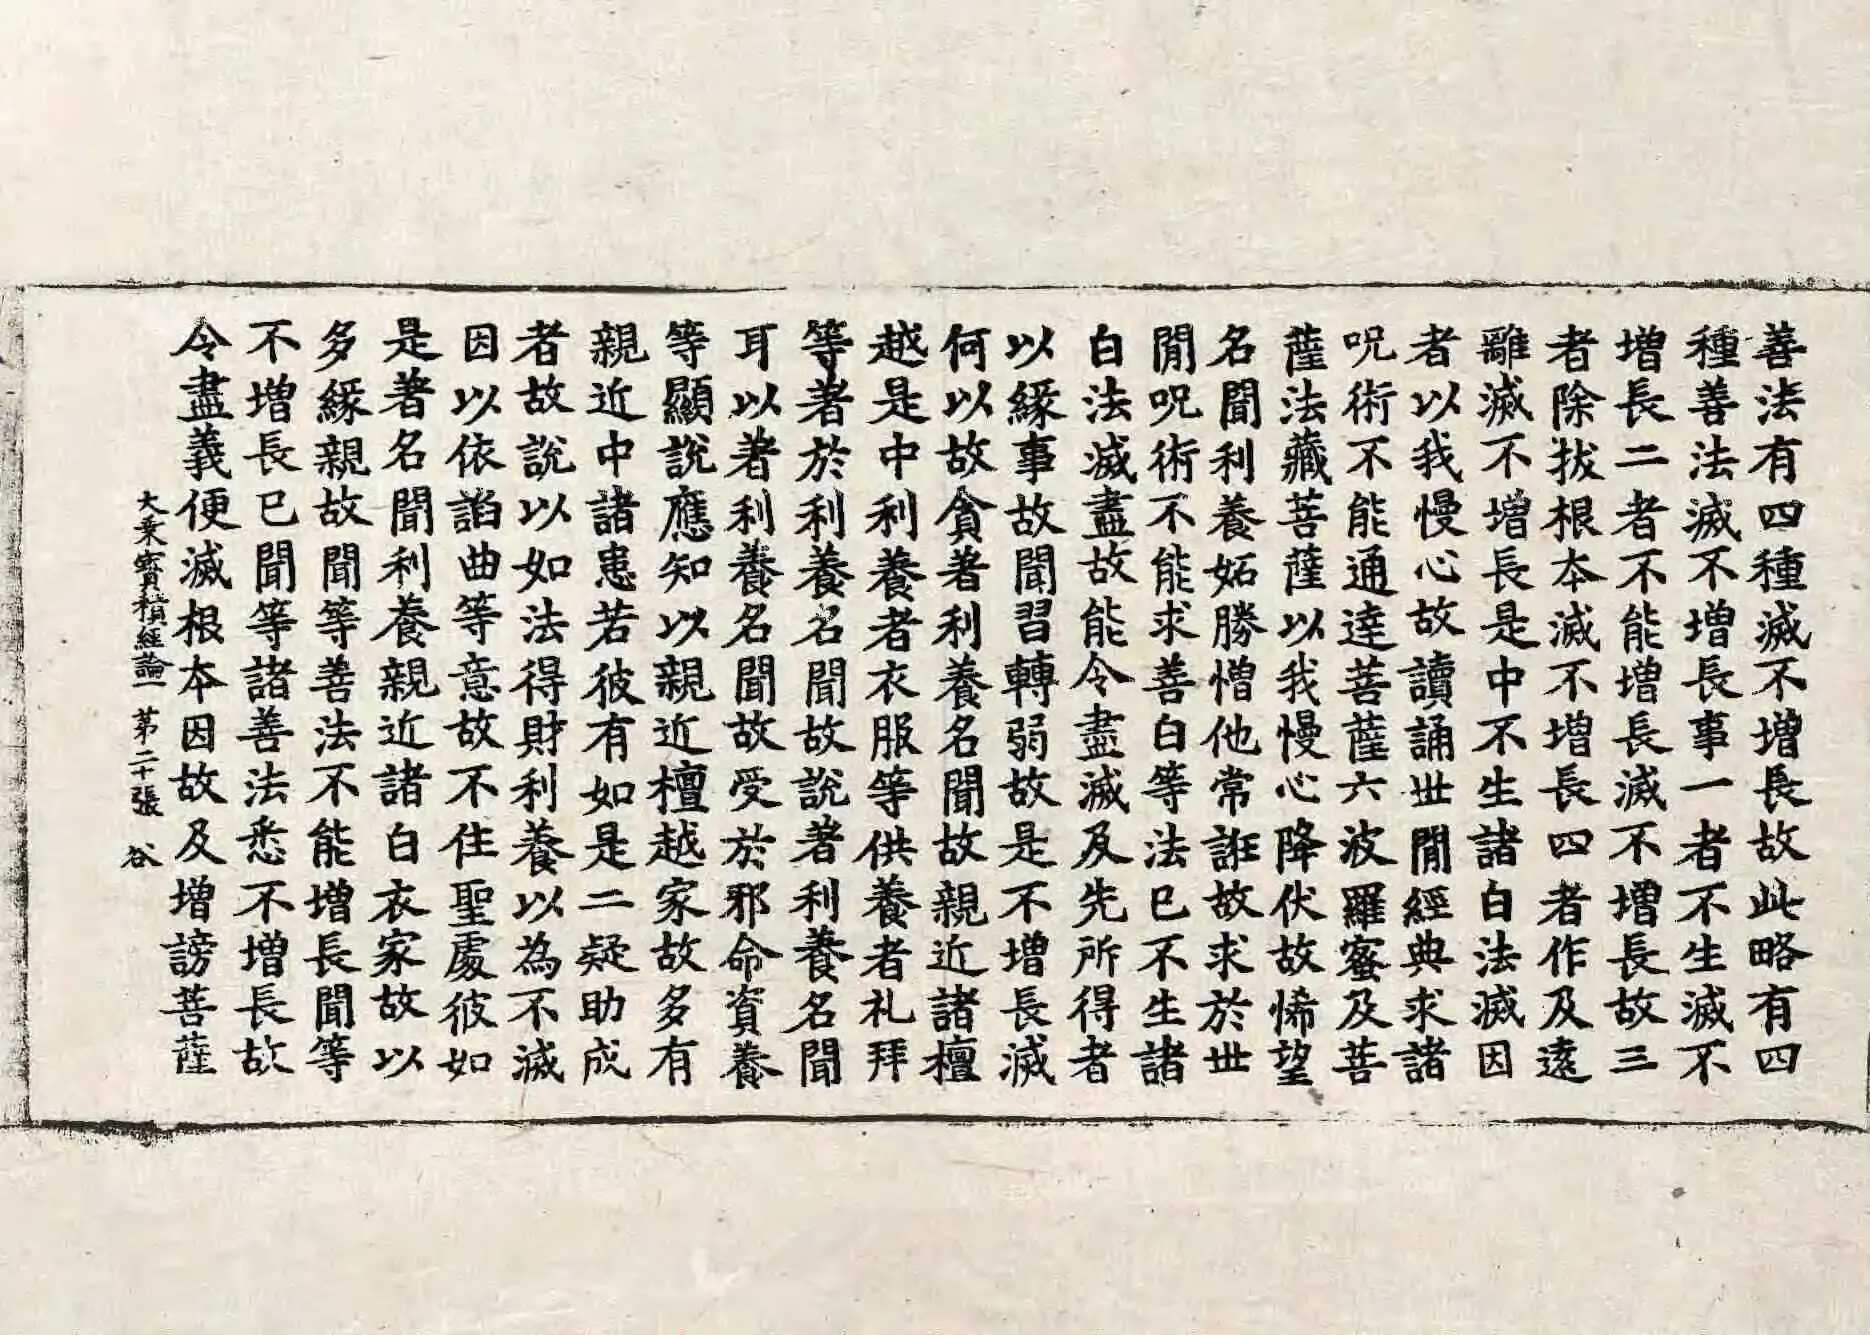 善法有四種滅不增長故此略有四
種善法滅不增長事一者不生滅不
增長二者不能增長滅不增長故三
者除拔根本滅不增長四者作及遠
離滅不增長是中不生諸白法滅因
者以我慢心故讀誦世閒經典求諸
呪術不能通達菩薩六波羅蜜及菩
薩法藏菩薩以我慢心降伏故悕望
名聞利養妬勝憎他常誑故求於世
閒呪術不能求善白等法已不生諸
白法滅盡故能令盡滅及先所得者
以緣事故聞習轉弱故是不增長滅
何以故貪著利養名聞故親近諸檀
越是中利養者衣服等供養者礼拜
等著於利養名聞故說著利養名聞
耳以著利養名聞故受於邪命資養
等顯說應知以親近檀越家故多有
親近中諸患若彼有如是二疑助成
者故說以如法得財利養以為不滅
因以依諂曲等意故不住聖處彼如
是著名聞利養親近諸白衣家故以
多緣親故聞等善法不能增長聞等
不增長已聞等諸善法悉不增長故
令盡義便滅根本因故及增謗菩薩
大乘寶積經論一 第二十張 谷